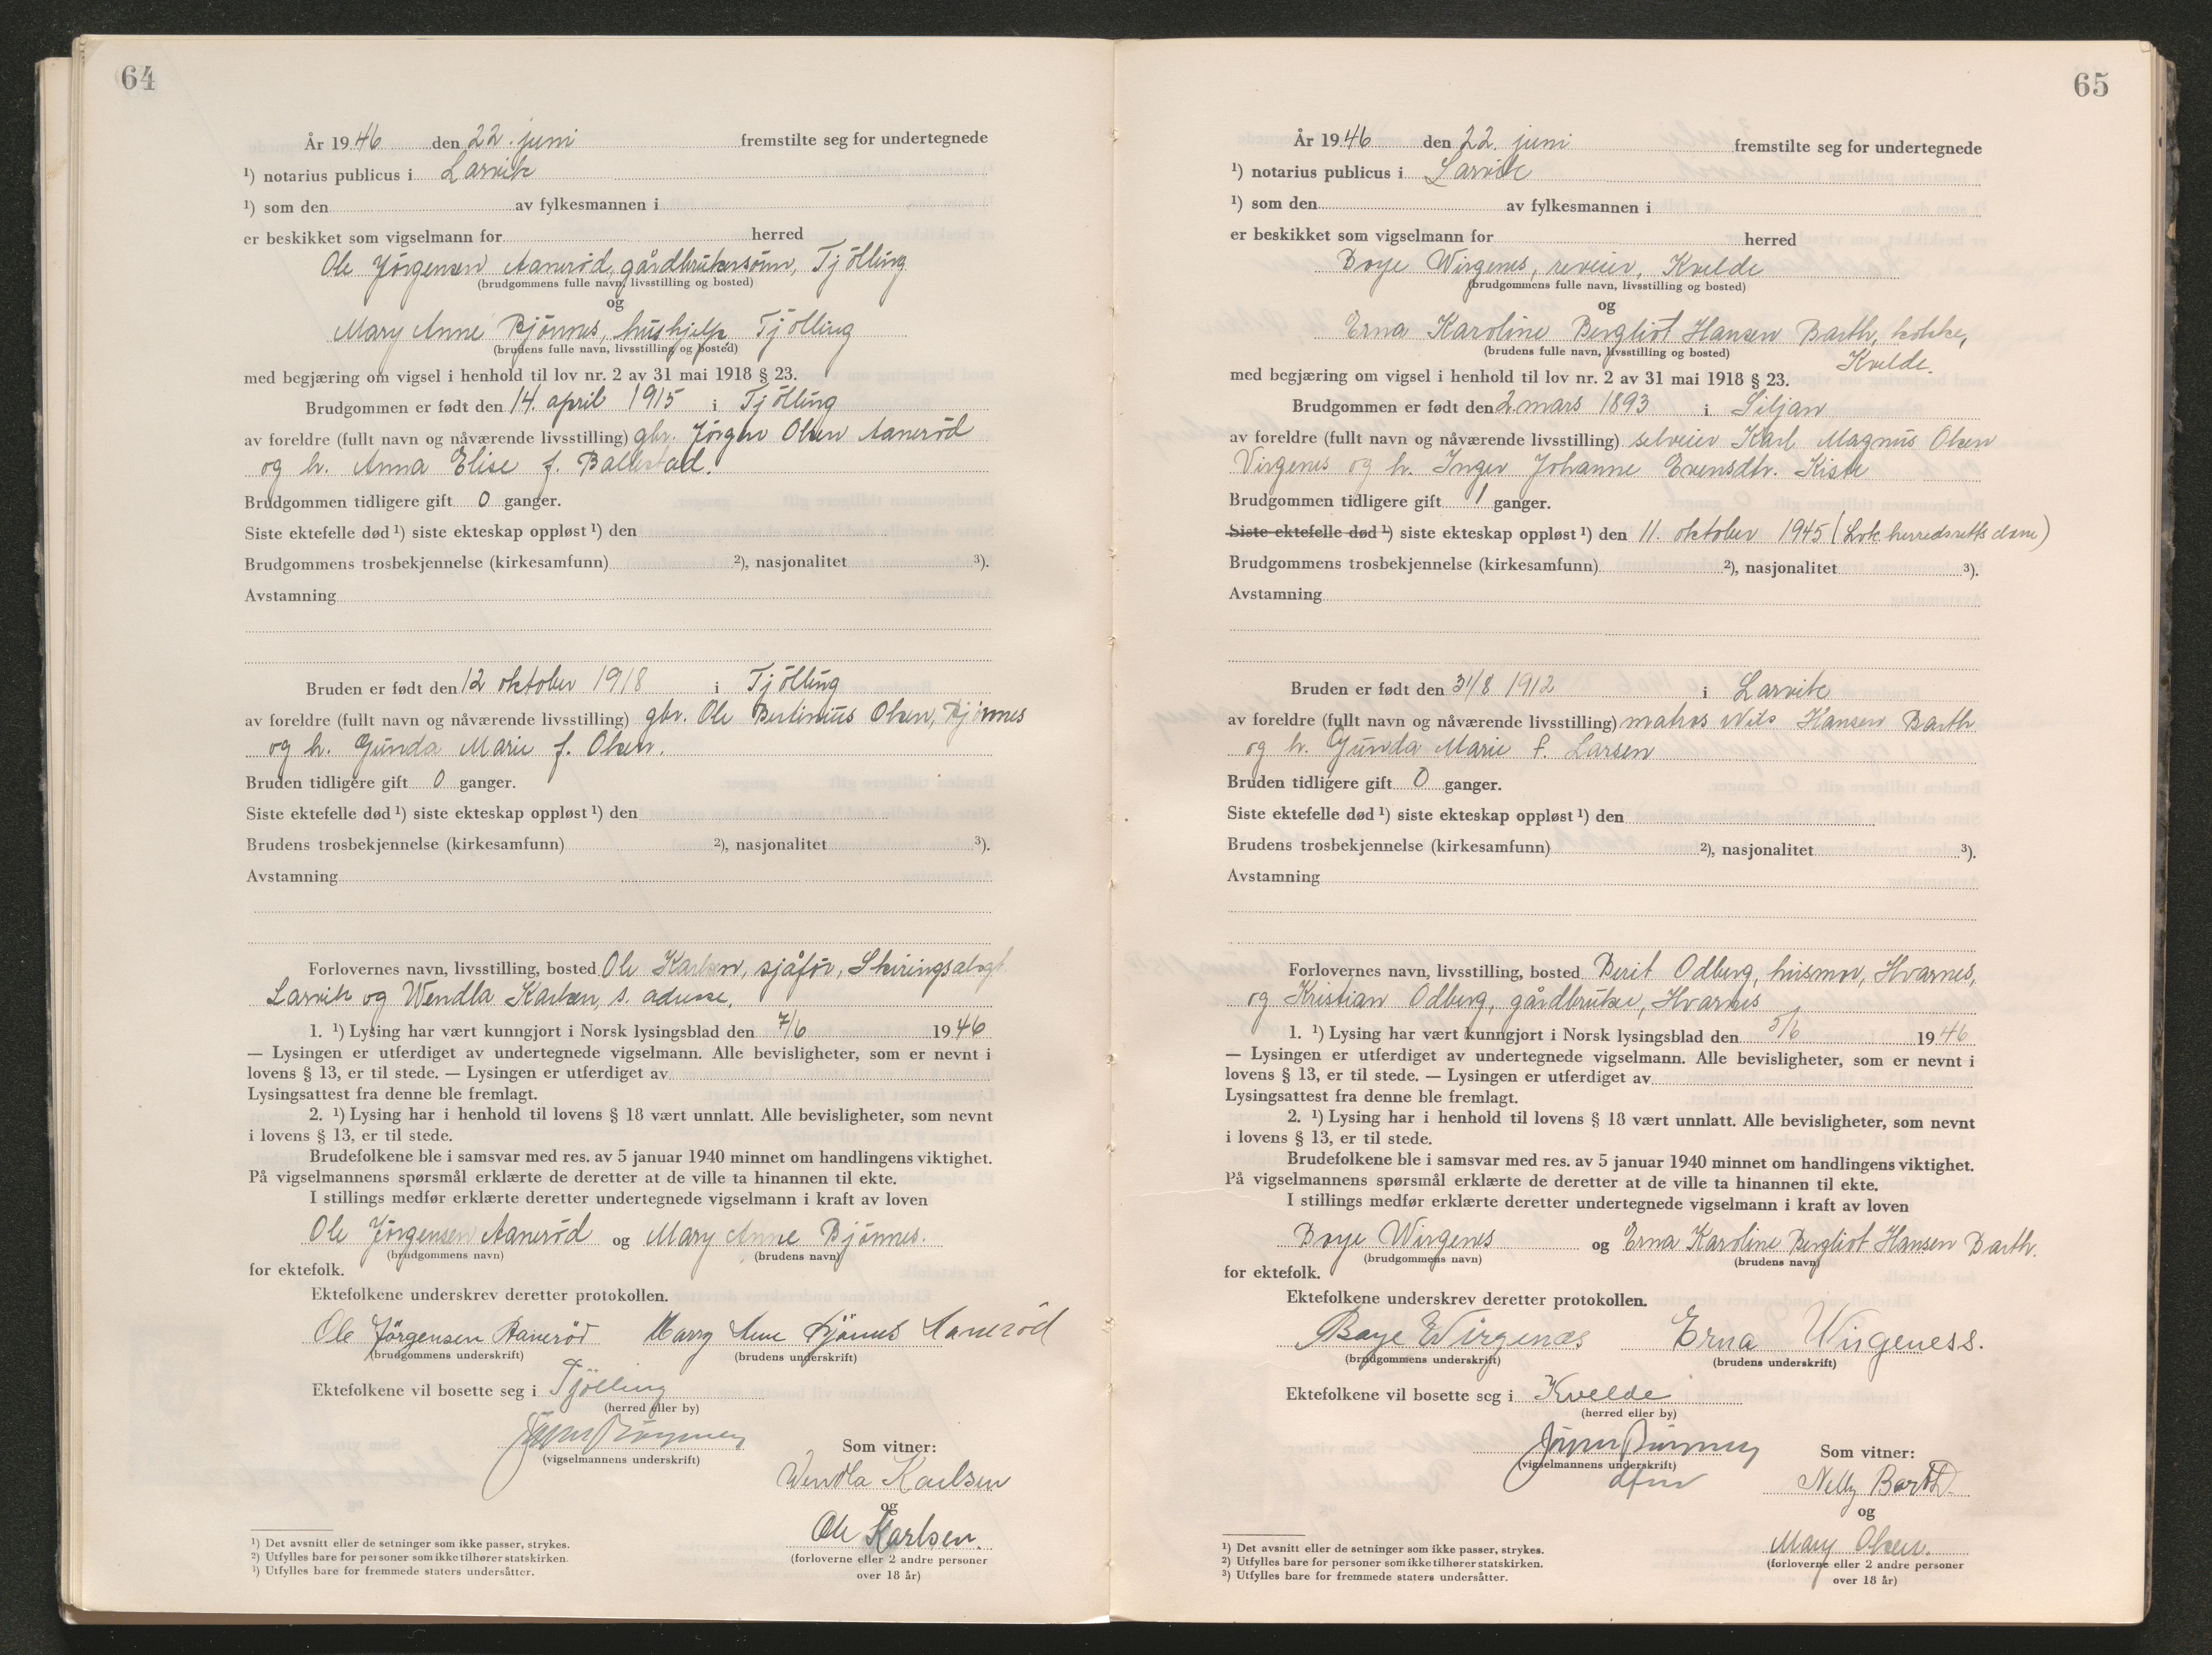 64
År 1946 den 22. juni fremstilte seg for undertegnede
¹) notarius publicus i Larvik
¹) som den av fylkesmannen i
er beskikket som vigselmann for herred
Ole Jørgensen Aanerød, gårdbrukersønn, Tjölling
(brudgommens fulle navn, livsstilling og bosted)
og
Mary Anne Bjönnes, hushjelp, Tjölling
(brudens fulle navn, livsstilling og bosted)
med begjæring om vigsel i henhold til lov nr. 2 av 31 mai 1918 § 23.
Brudgommen er født den 14. april 1915 i Tjölling
av foreldre (fullt navn og nåværende livsstilling) gbr. Jørgen Olsen Aanerød
og h. Anna Elise f. Ballestad.
Brudgommen tidligere gift 0 ganger.
Siste ektefelle død ¹) siste ekteskap oppløst ¹) den
Brudgommens trosbekjennelse (kirkesamfunn) ²), nasjonalitet ³).
Avstamning
Bruden er født den 12 oktober 1918 i Tjölling
av foreldre (fullt navn og nåværende livsstilling) gbr. Ole Bertinius Olsen, Bjönnes
og h. Gunda Marie f. Olsen.
Bruden tidligere gift 0 ganger.
Siste ektefelle død ¹) siste ekteskap oppløst ¹) den
Brudens trosbekjennelse (kirkesamfunn) ²), nasjonalitet ³).
Avstamning
Forlovernes navn, livsstilling, bosted Ole Karlsen, sjåför, Skiringsalsgt
Larvik og Wendla Karlsen, s. adresse.
1. ¹) Lysing har vært kunngjort i Norsk lysingsblad den 7/6 1946
— Lysingen er utferdiget av undertegnede vigselmann. Alle bevisligheter, som er nevnt i
lovens § 13, er til stede. — Lysingen er utferdiget av
Lysingsattest fra denne ble fremlagt.
2. ¹) Lysing har i henhold til lovens § 18 vært unnlatt. Alle bevisligheter, som nevnt
i lovens § 13, er til stede.
Brudefolkene ble i samsvar med res. av 5 januar 1940 minnet om handlingens viktighet.
På vigselmannens spørsmål erklærte de deretter at de ville ta hinannen til ekte.
I stillings medfør erklærte deretter undertegnede vigselmann i kraft av loven
Ole Jørgensen Aanerød og Mary Anne Bjönnes.
(brudgommens navn) (brudens navn)
for ektefolk.
Ektefolkene underskrev deretter protokollen.
Ole Jörgensen Aaneröd Mary Anne Bjönnes Aaneröd
(brudgommens underskrift) (brudens underskrift)
Ektefolkene vil bosette seg i Tjölling
(herred eller by)
(vigselmannens underskrift)
Som vitner:
Wendla Karlsen
og
Ole Karlsen.
(forloverne eller 2 andre personer
over 18 år)
¹) Det avsnitt eller de setninger som ikke passer, strykes.
²) Utfylles bare for personer som ikke tilhører statskirken.
³) Utfylles bare for fremmede staters undersåtter.
65
År 1946 den 22. juni fremstilte seg for undertegnede
¹) notarius publicus i Larvik
¹) som den av fylkesmannen i
er beskikket som vigselmann for herred
Boye Wirgenes, reveier, Kvelde
(brudgommens fulle navn, livsstilling og bosted)
og
Erna Karoline Bergliot Hansen Barth, kokke,
(brudens fulle navn, livsstilling og bosted)
Kvelde.
med begjæring om vigsel i henhold til lov nr. 2 av 31 mai 1918 § 23.
Brudgommen er født den 2 mars 1893 i Siljan
av foreldre (fullt navn og nåværende livsstilling) selveier Karl Magnus Olsen
Virgenes og h. Inger Johanne Evensdtr. Kiste
Brudgommen tidligere gift 1 ganger.
Siste ektefelle død ¹) siste ekteskap oppløst ¹) den 11. oktober 1945 (Lvk herredsretts dom)
Brudgommens trosbekjennelse (kirkesamfunn) ²), nasjonalitet ³).
Avstamning
Bruden er født den 31/8 1912 i Larvik
av foreldre (fullt navn og nåværende livsstilling) matros Nils Hansen Barth
og h. Gunda Marie f. Larsen
Bruden tidligere gift 0 ganger.
Siste ektefelle død ¹) siste ekteskap oppløst ¹) den
Brudens trosbekjennelse (kirkesamfunn) ²), nasjonalitet ³).
Avstamning
Forlovernes navn, livsstilling, bosted Berit Odberg, husmor, Hvarnes,
og Kristian Odberg, gårdbruker, Hvarnes
1. ¹) Lysing har vært kunngjort i Norsk lysingsblad den 5/6 1946
— Lysingen er utferdiget av undertegnede vigselmann. Alle bevisligheter, som er nevnt i
lovens § 13, er til stede. — Lysingen er utferdiget av
Lysingsattest fra denne ble fremlagt.
2. ¹) Lysing har i henhold til lovens § 18 vært unnlatt. Alle bevisligheter, som nevnt
i lovens § 13, er til stede.
Brudefolkene ble i samsvar med res. av 5 januar 1940 minnet om handlingens viktighet.
På vigselmannens spørsmål erklærte de deretter at de ville ta hinannen til ekte.
I stillings medfør erklærte deretter undertegnede vigselmann i kraft av loven
Boye Wirgenes og Erna Karoline Bergliot Hansen Barth.
(brudgommens navn) (brudens navn)
for ektefolk.
Ektefolkene underskrev deretter protokollen.
Boye Wirgenæs Erna Wirgeness.
(brudgommens underskrift) (brudens underskrift)
Ektefolkene vil bosette seg i Kvelde
(herred eller by)
(vigselmannens underskrift)
Som vitner:
Nelly Barth
og
Mary Olsen.
(forloverne eller 2 andre personer
over 18 år)
¹) Det avsnitt eller de setninger som ikke passer, strykes.
²) Utfylles bare for personer som ikke tilhører statskirken.
³) Utfylles bare for fremmede staters undersåtter.